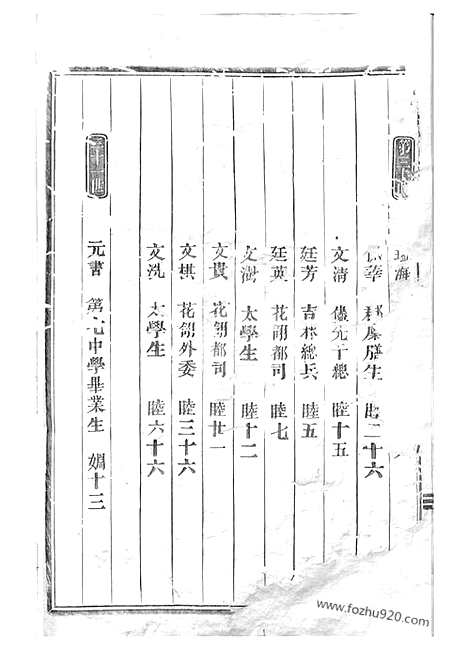 海
華 生 二十六
文清 儘先千總 睦十五
廷芳 吉林總兵 睦五
廷英 花翎都司 睦七
文澍 太學生 睦十二
文貴 花翎都司 睦廿一
文棋 花翎外委 睦三十六
文洗 太學生 睦六十六
元書 第七中學畢業生 婣十三
www.fozhu920.com